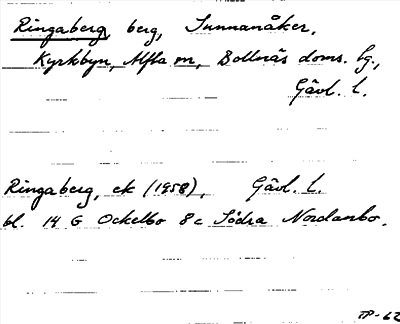 Ringaberg berg, Sunnanåker,
Kyrkbyn, Alfta sn, Bollnäs doms. lg.,
Gävl. l.
Ringaberg, ek (1958), Gävl. l.
bl. 14 G Ockelbo 8c Södra Nordanbo.
TP-62